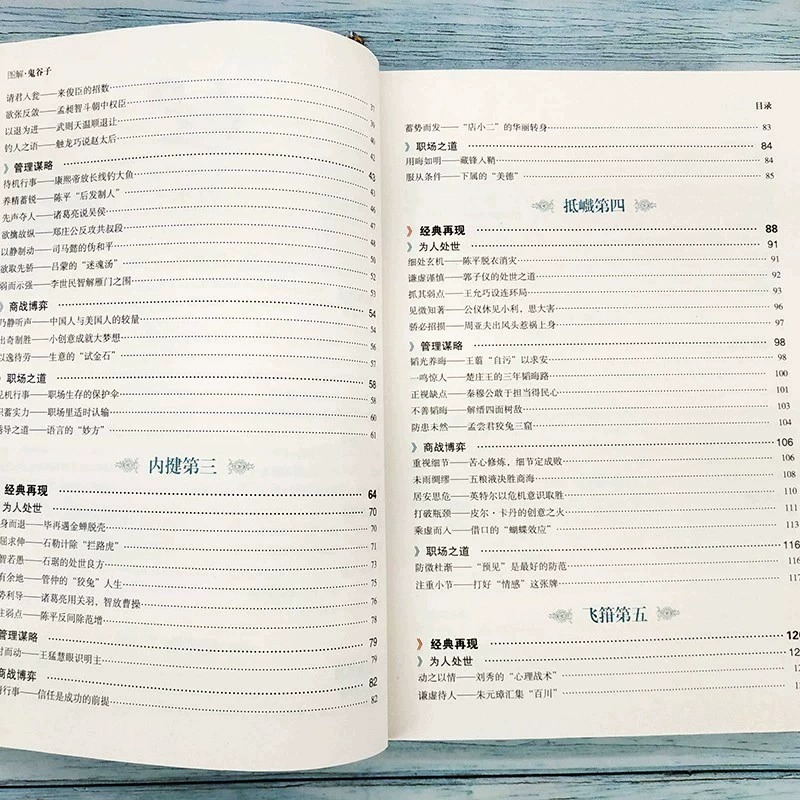 图解·鬼谷子
请君入瓮——来俊臣的招数 37
欲张反敛——孟昶智斗朝中权臣 39
以退为进——武则天温顺退让 40
钓人之语——触龙巧说赵太后 42
管理谋略 43
待机行事——康熙帝放长线钓大鱼 43
养精蓄锐——陈平“后发制人” 45
先声夺人——诸葛亮说吴侯 46
欲擒故纵——郑庄公反攻共叔段 47
以静制动——司马懿的伪和平
欲取先骄——吕蒙的“迷魂汤” 52
弱而示强——李世民智解雁门之围 53
商战博弈 54
乃静听声——中国人与美国人的较量 54
出奇制胜——小创意成就大梦想 56
以逸待劳——生意的“试金石” 57
职场之道 58
见机行事——职场生存的保护伞 58
积蓄实力——职场里适时认输 60
诱导之道——语言的“妙方” 61
内揵第三
经典再现 64
为人处世 70
身而退——毕再遇金蝉脱壳 70
屈求伸——石勒计除“拦路虎” 71
智若愚——石琚的处世良方 72
有余地——管仲的“狡兔”人生 74
势利导——诸葛亮用关羽，智放曹操 75
主弱点——陈平反间除范增 78
管理谋略 79
时而动——王猛慧眼识明主 79
商战博弈 82
行事——信任是成功的前提 82
目录
蓄势而发——“店小二”的华丽转身 83
职场之道 84
用晦如明——藏锋入鞘 84
服从条件——下属的“美德” 85
抵巇第四
经典再现 88
为人处世 91
细处玄机——陈平脱衣消灾 91
谦虚谨慎——郭子仪的处世之道 92
抓其弱点——王允巧设连环局 93
见微知著——公仪休见小利，思大害 96
骄必招损——周亚夫出风头惹祸上身 97
管理谋略 98
韬光养晦——王翦“自污”以求安 98
一鸣惊人——楚庄王的三年韬晦路 100
正视缺点——秦穆公敢于担当得民心 101
不善韬晦——解缙四面树敌 103
防患未然——孟尝君狡兔三窟 104
商战博弈 106
重视细节——苦心修炼，细节定成败 106
未雨绸缪——五粮液决胜商海 108
居安思危——英特尔以危机意识取胜 110
打破瓶颈——皮尔·卡丹的创意之火 111
乘虚而入——借口的“蝴蝶效应” 113
职场之道 116
防微杜渐——“预见”是最好的防范 116
注重小节——打好“情感”这张牌 117
飞箝第五
经典再现 120
为人处世
动之以情——刘秀的“心理战术”
谦虚待人——朱元璋汇集“百川”